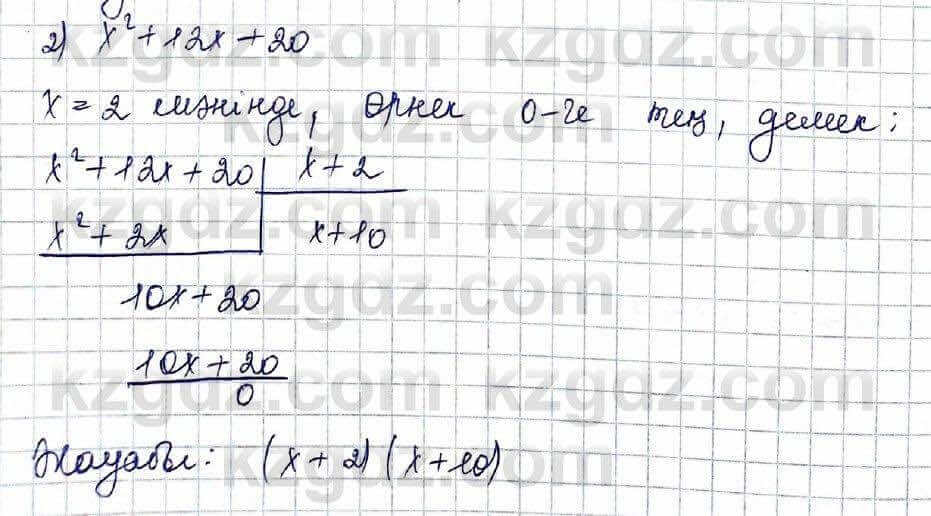 2) x² + 12x + 20
x = 2 мәнінде, өрнек 0-ге тең, демек:
x² + 12x + 20 | x + 2
x² + 2x | x + 10
10x + 20
10x + 20
0
Жауабы: (x + 2) (x + 10)
kzgdz.com